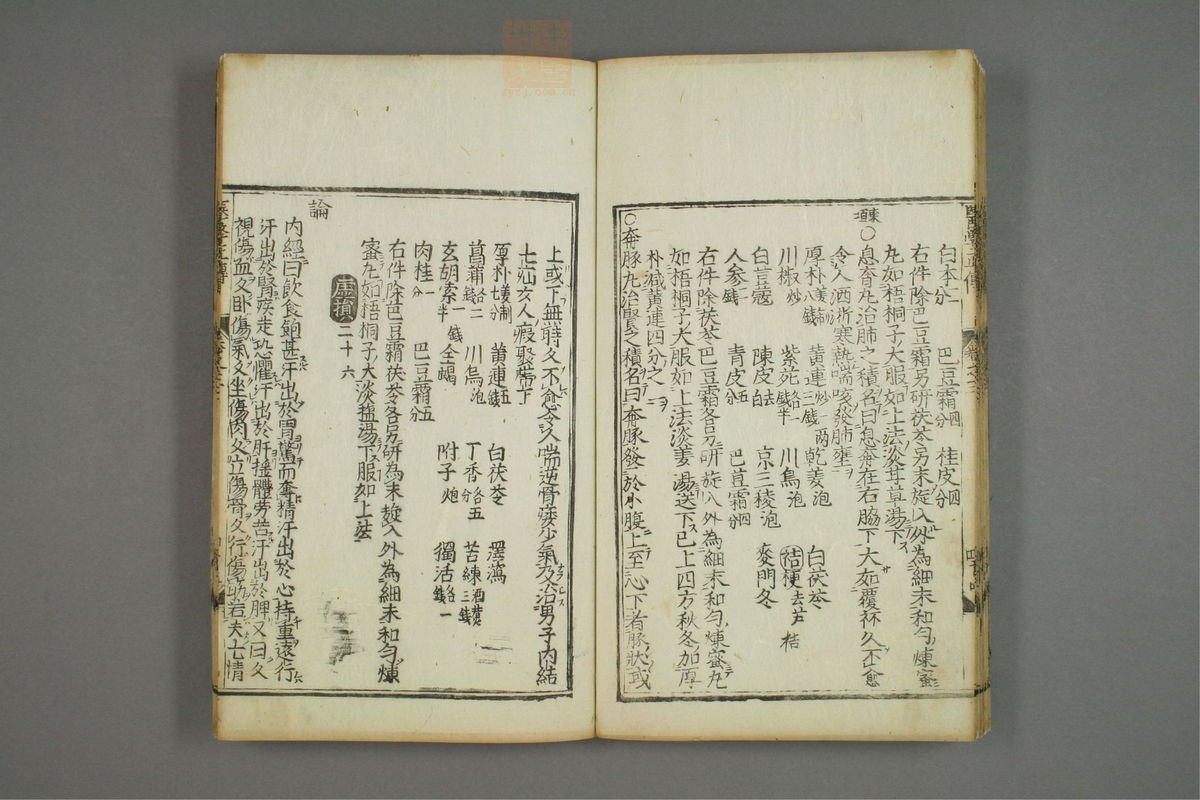 白朮二分 巴豆霜四分 桂皮四分
右件除巴豆霜另研茯苓另末旋入外為細末和勻煉蜜
丸如梧桐子大服如上法淡甘草湯下
東垣
○息賁丸治肺之積名曰息奔在右脇下大如覆杯久不愈
令人洒淅寒熱喘咳發肺壅
厚朴姜制八錢 黃連炒三錢 兩 乾姜泡 白茯苓
川椒炒 紫菀各一錢半 川烏泡 桔梗去芦 桔
白荳蔻 陳皮去白 京三稜泡 麥門冬
人参一錢 青皮五分 巴荳霜四分
右件除茯苓巴豆霜各另研旋入外為細末和勻煉蜜丸
如梧桐子大服如上法淡姜湯送下已上四方秋冬加厚
朴減黃連四分之一
○奔豚丸治腎之積名曰奔豚發於小腹上至心下若豚狀或
上或下無時久不愈令人喘逆骨痿少氣及治男子內結
七疝女人瘕聚帶下
厚朴姜制七錢 黃連五錢 白茯苓 澤瀉
菖蒲各二錢 川烏泡 丁香各五分 苦練酒煑三錢
玄胡索一錢半 全蝎 附子炮 獨活各一錢
肉桂一分 巴豆霜五分
右件除巴豆霜茯苓各另研為末旋入外為細末和勻煉
蜜丸如梧桐子大淡塩湯下服如上法
虛損二十六
論
內經曰飲食飽甚汗出於胃驚而奪精汗出於心持重遠行
汗出於腎疾走恐懼汗出於肝搖體勞苦汗出於脾又曰久
視傷血久臥傷氣久坐傷肉久立傷骨久行傷筋若夫七情